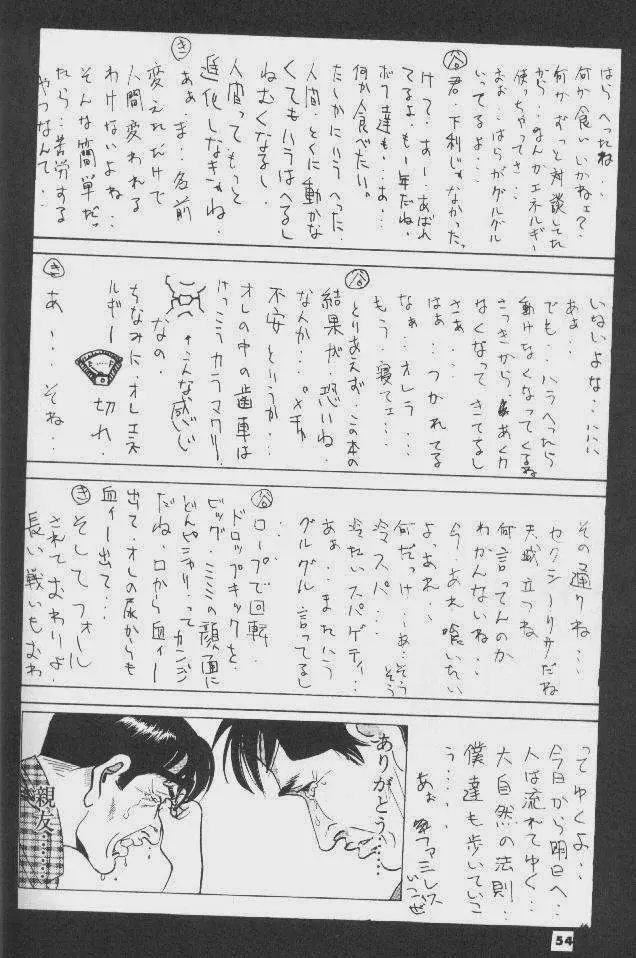 はらへったね…
何か食いいかねェ?…
何かずっと対談してた
から…なんかエネルギー
使っちゃってさ…
おぉ…はらがグルグル
いってるよ…
谷 君、下利じゃなかった
けて…すー、あばれ
てるよ、もー年だね。
ボク達も…あ…
何か食べたい。
たしかにハラへった…
人間、とくに動かな
くてもハラはへるし
ねむくなるし、
人間って、もっと
進化しなきゃね…
き あぁ、ま…名前
変えただけで
人間変われる
わけないよね…
そんな簡単だっ
たら…苦労する
やつなんて…
いないよな…ハハハ
あぁ…
でも…ハラへったら
動けなくなってくるね
さっきからあくカ
なくなってきてるし
さぁ…
はぁ…つかれてる
なぁ…オレラ…
もう…寝てェ…
谷 とりあえず…この本の
結果が…恐いね…
なんか…メチャ
不安というか…
オレの中の歯車は
けっこうカラマワリ…
↑こんな感じ
なの。
ちなみに、オレ、エネ
ルギー 切れ。
き あー…そね…
その通りね…
セクシーリサだね
天城立つね
何言ってんのか
わかんないね…
今…あれ喰いたい
よ、あれ…
何だっけ…あ…そうそう
冷スパ…
冷たいスパゲティ…
あぁ…またハラ
グルグル言ってるし
…
谷 ロープで回転
ドロップキックを
ビッグ・ミミミの顔面に
どんピシャリ…ってカンジ
だね、口から血ィー
出て、オレの尿からも
血ィー出て…
き そしてフォール
されておわりよ…
長い戦いもおわ
ってゆくよ…
今日から明日へ…
人は流れてゆく…
大自然の法則…
僕達も歩いていこ
う…っ
あぉ ファミレス
いこうぜ
ありがとう……
親友………
54